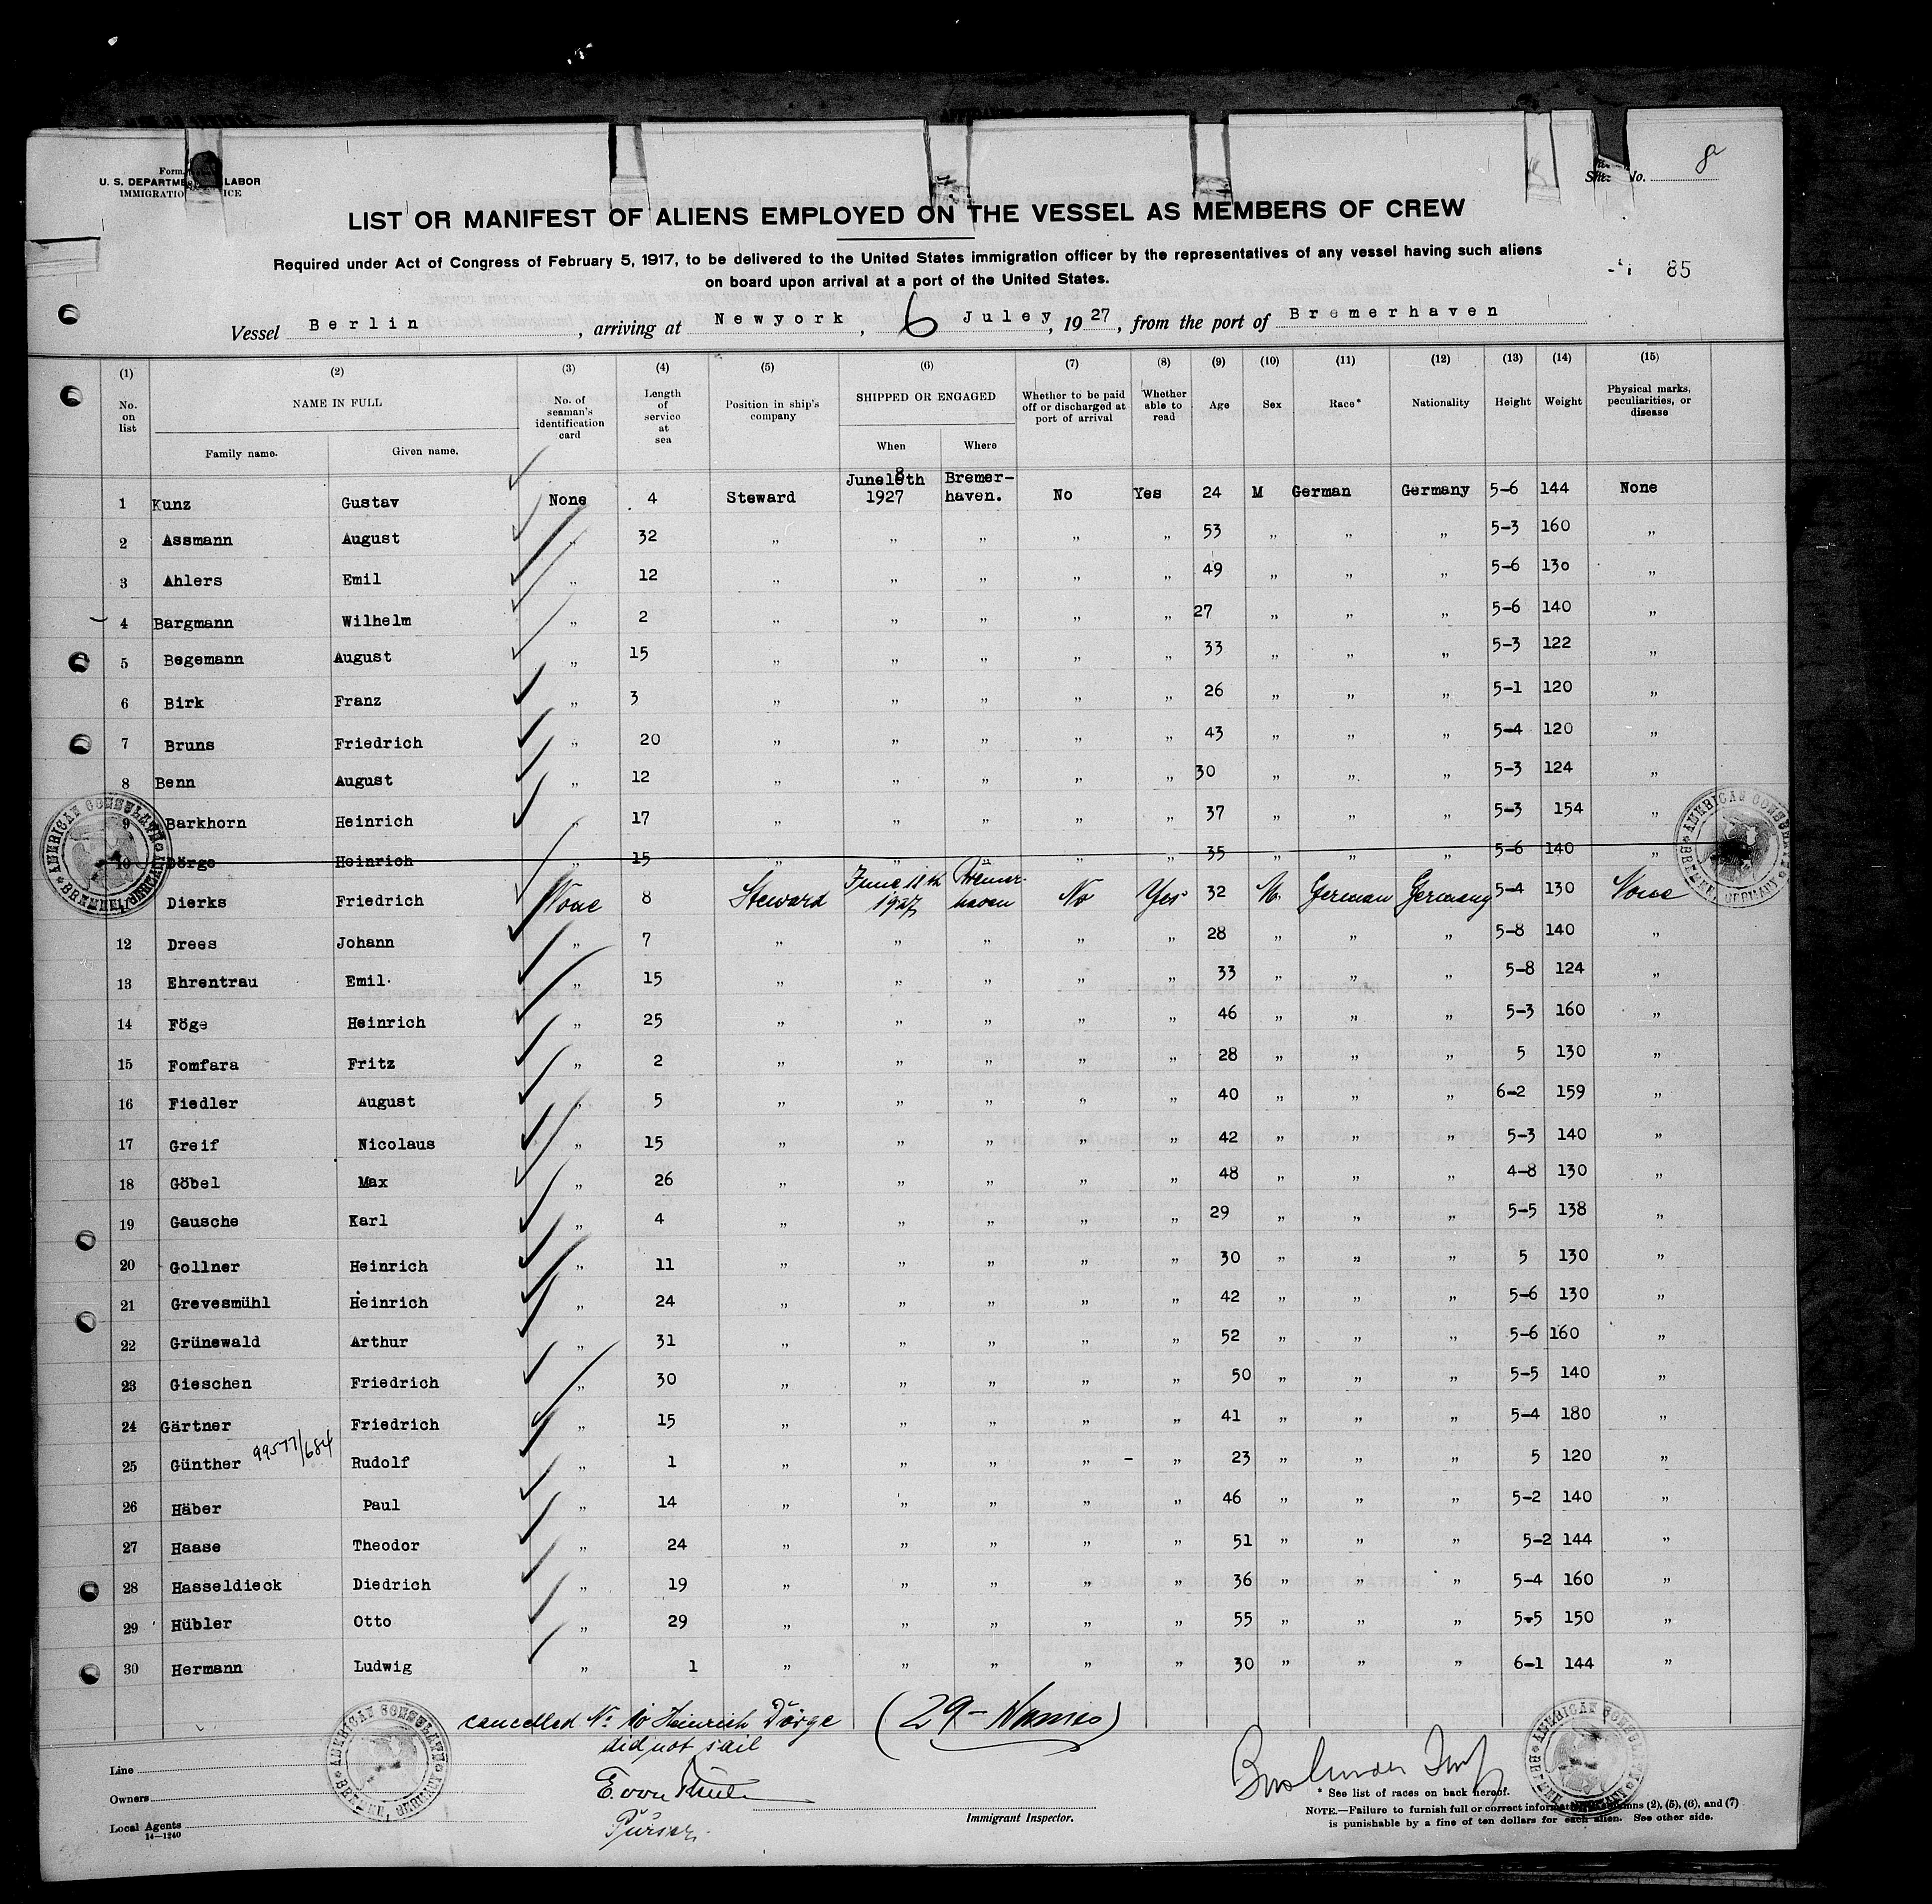 Form
U. S. DEPARTMENT LABOR
IMMIGRATION SERVICE
Sheet No. 8
LIST OR MANIFEST OF ALIENS EMPLOYED ON THE VESSEL AS MEMBERS OF CREW
Required under Act of Congress of February 5, 1917, to be delivered to the United States immigration officer by the representatives of any vessel having such aliens
on board upon arrival at a port of the United States.
85
Vessel Berlin, arriving at Newyork, 6 Juley, 1927, from the port of Bremerhaven
(1) (2) (3) (4) (5) (6) (7) (8) (9) (10) (11) (12) (13) (14) (15)
No. on list NAME IN FULL Family name. Given name. No. of seaman's identification card Length of service at sea Position in ship's company SHIPPED OR ENGAGED When Where Whether to be paid off or discharged at port of arrival Whether able to read Age Sex Race* Nationality Height Weight Physical marks, peculiarities, or disease
1 Kunz Gustav None 4 Steward June 18th 1927 Bremer-haven. No Yes 24 M German Germany 5-6 144 None
2 Assmann August „ 32 „ „ „ „ „ 53 „ „ „ 5-3 160 „
3 Ahlers Emil „ 12 „ „ „ „ „ 49 „ „ „ 5-6 130 „
4 Bargmann Wilhelm „ 2 „ „ „ „ „ 27 „ „ „ 5-6 140 „
5 Begemann August „ 15 „ „ „ „ „ 33 „ „ „ 5-3 122 „
6 Birk Franz „ 3 „ „ „ „ „ 26 „ „ „ 5-1 120 „
7 Bruns Friedrich „ 20 „ „ „ „ „ 43 „ „ „ 5-4 120 „
8 Benn August „ 12 „ „ „ „ „ 30 „ „ „ 5-3 124 „
9 Barkhorn Heinrich „ 17 „ „ „ „ „ 37 „ „ „ 5-3 154 „
10 Dörge Heinrich „ 15 „ „ „ „ „ 35 „ „ „ 5-6 140 „
Dierks Friedrich None 8 Steward June 18th 1927 Bremer-haven No Yes 32 M. German Germany 5-4 130 None
12 Drees Johann „ 7 „ „ „ „ „ 28 „ „ „ 5-8 140 „
13 Ehrentrau Emil. „ 15 „ „ „ „ „ 33 „ „ „ 5-8 124 „
14 Föge Heinrich „ 25 „ „ „ „ „ 46 „ „ „ 5-3 160 „
15 Fomfara Fritz „ 2 „ „ „ „ „ 28 „ „ „ 5 130 „
16 Fiedler August „ 5 „ „ „ „ „ 40 „ „ „ 6-2 159 „
17 Greif Nicolaus „ 15 „ „ „ „ „ 42 „ „ „ 5-3 140 „
18 Göbel Max „ 26 „ „ „ „ „ 48 „ „ „ 4-8 130 „
19 Gausche Karl „ 4 „ „ „ „ „ 29 „ „ „ 5-5 138 „
20 Gollner Heinrich „ 11 „ „ „ „ „ 30 „ „ „ 5 130 „
21 Grevesmühl Heinrich „ 24 „ „ „ „ „ 42 „ „ „ 5-6 130 „
22 Grünewald Arthur „ 31 „ „ „ „ „ 52 „ „ „ 5-6 160 „
23 Gieschen Friedrich „ 30 „ „ „ „ „ 50 „ „ „ 5-5 140 „
24 Gärtner Friedrich „ 15 „ „ „ „ „ 41 „ „ „ 5-4 180 „
25 Günther 99577/684 Rudolf „ 1 „ „ „ „ „ 23 „ „ „ 5 120 „
26 Häber Paul „ 14 „ „ „ „ „ 46 „ „ „ 5-2 140 „
27 Haase Theodor „ 24 „ „ „ „ „ 51 „ „ „ 5-2 144 „
28 Hasseldieck Diedrich „ 19 „ „ „ „ „ 36 „ „ „ 5-4 160 „
29 Hübler Otto „ 29 „ „ „ „ „ 55 „ „ „ 5-5 150 „
30 Hermann Ludwig „ 1 „ „ „ „ „ 30 „ „ „ 6-1 144 „
AMERICAN CONSULATE BREMEN, GERMANY
cancelled No. 10 Heinrich Dörge (29 - Names)
did not sail
Purser.
Line
Owners
Local Agents
14-1240
Immigrant Inspector.
* See list of races on back hereof.
NOTE.—Failure to furnish full or correct information columns (2), (5), (6), and (7)
is punishable by a fine of ten dollars for each alien. See other side.